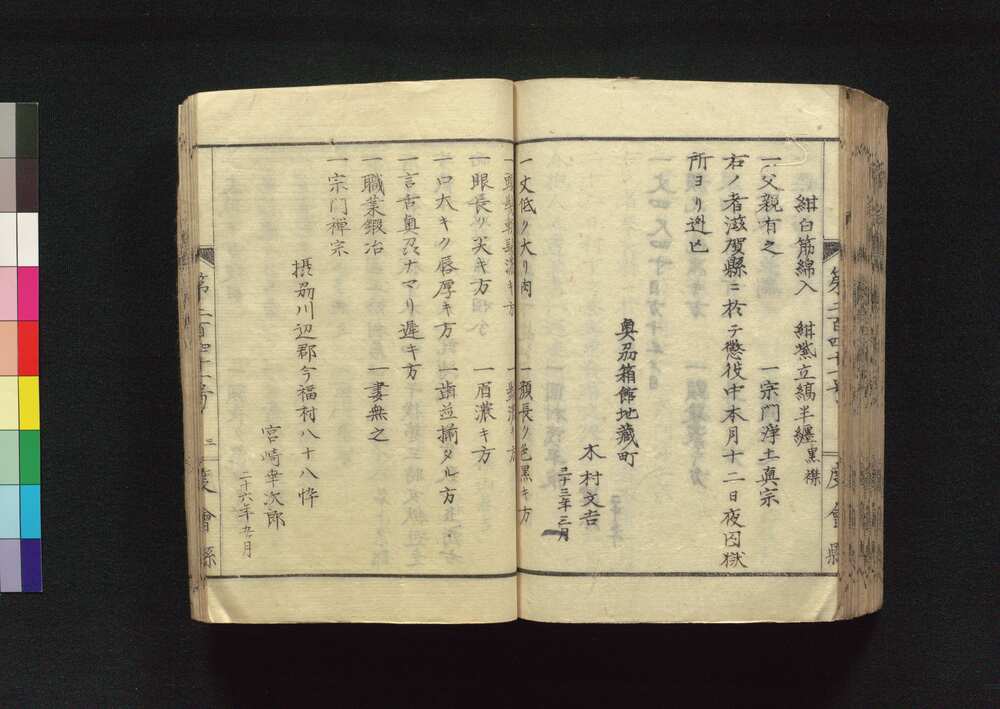 紺白筋綿入 紺鼠立縞半纏黒襟
一父親有之 一宗門浄土真宗
右ノ者滋賀縣ニ於テ懲役中本月十二日夜囚獄
所ヨリ逃亡
奥刕箱館地藏町
木村文吉
二十三年三月
一丈低ク大リ肉 一顔長ク色黒キ方
一眼長ク尖キ方 一眉濃キ方
一口大キク唇厚キ方 一歯並揃タル方
一言舌奥刕ナマリ遅キ方
一職業鍛冶 一妻無之
一宗門禅宗
摂刕川辺郡今福村八十八悴
宮崎幸次郎
二十六年五月
三
度會縣